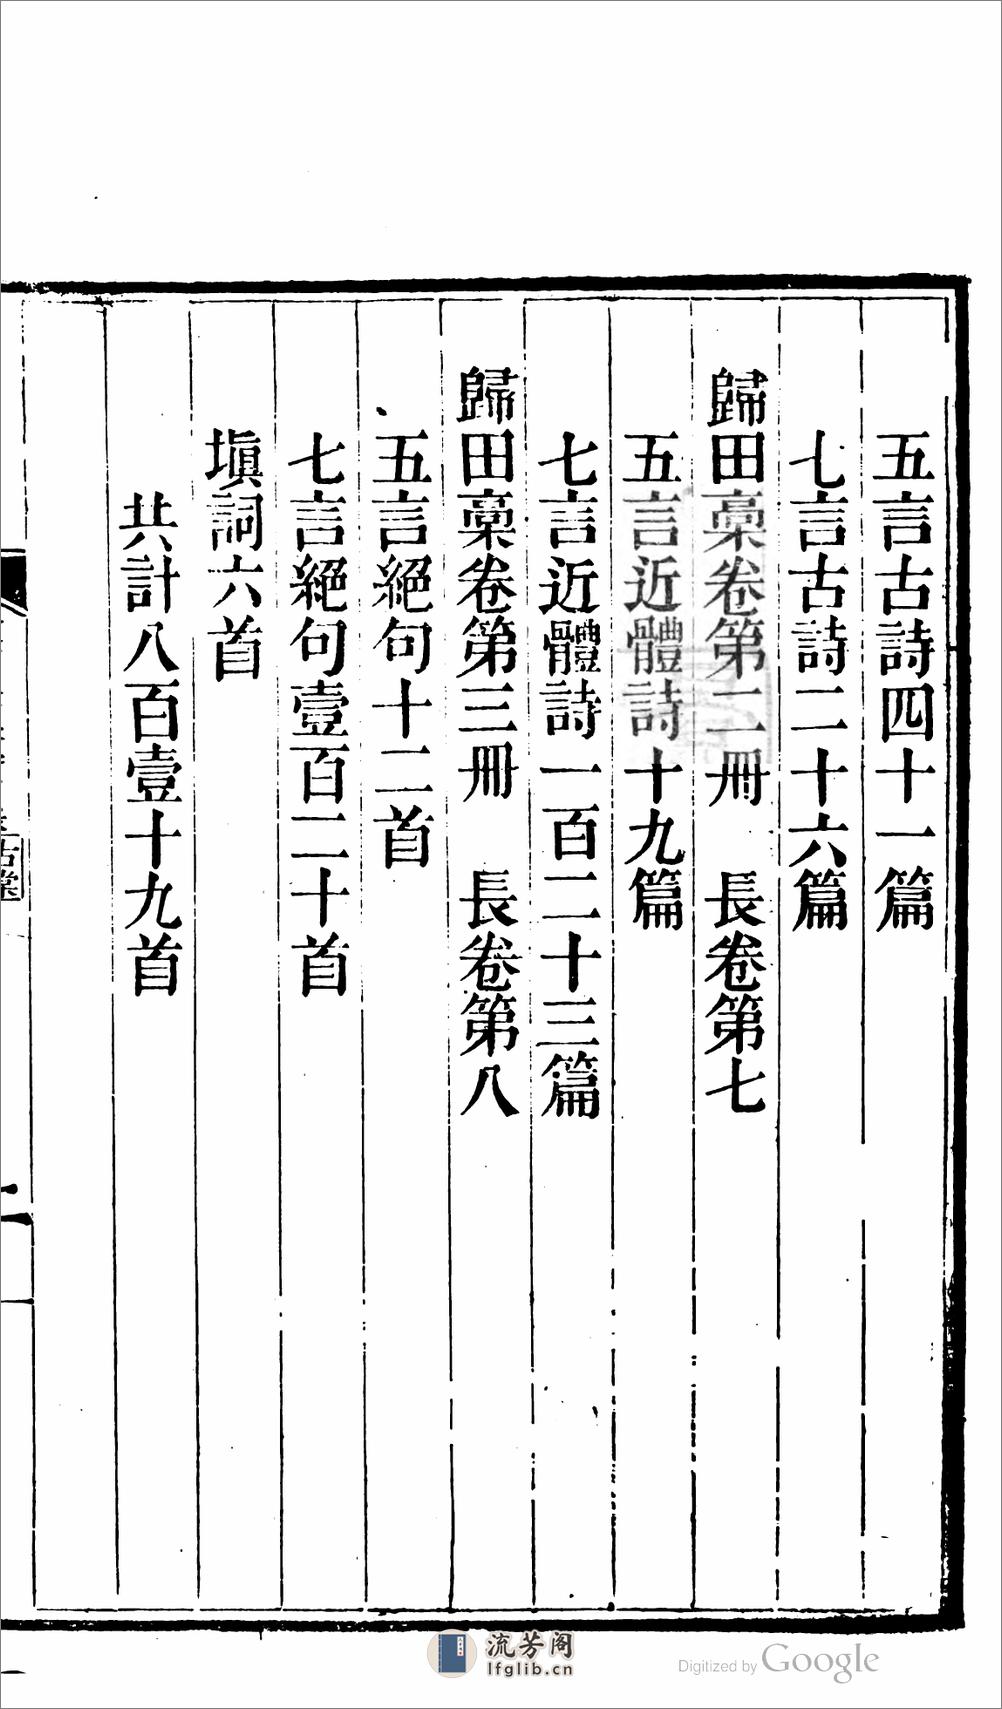 五言古詩四十一篇
七言古詩二十六篇
歸田稾卷第二冊　長卷第七
五言近體詩十九篇
七言近體詩一百二十三篇
歸田稾卷第三冊　長卷第八
五言絕句十二首
七言絕句壹百二十首
塡詞六首
共計八百壹十九首
流芳阁
lfglib.cn
Digitized by Google